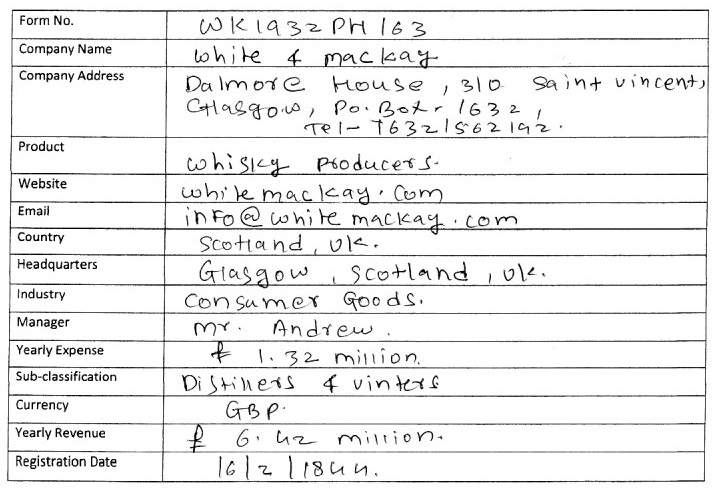 Form No. WK1932PH163
Company Name White & mackay
Company Address Dalmore House, 310 Saint vincent,
Glasgow, Po. Box- 1632,
Tel- T6321562192.
Product Whisky Producers.
Website whitemackay.com
Email info@whitemackay.com
Country Scotland, UK.
Headquarters Glasgow, Scotland, UK.
Industry Consumer Goods.
Manager Mr. Andrew.
Yearly Expense £ 1.32 million.
Sub-classification Distillers & vinters
Currency GBP.
Yearly Revenue £ 6.42 million.
Registration Date 16/2/1844.